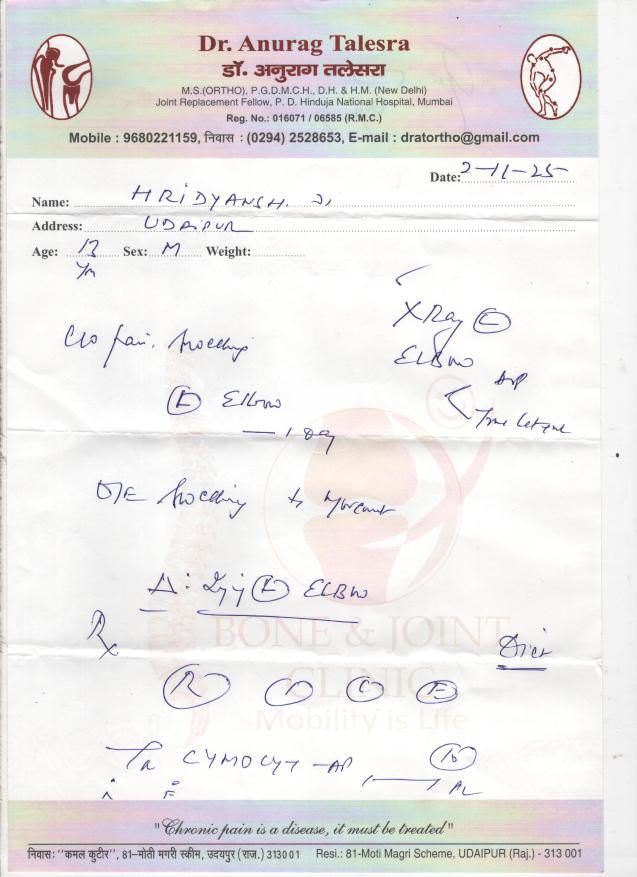 Dr. Anurag Talesra
डॉ. अनुराग तलेसरा
M.S.(ORTHO), P.G.D.M.C.H., D.H. & H.M. (New Delhi)
Joint Replacement Fellow, P. D. Hinduja National Hospital, Mumbai
Reg. No.: 016071 / 06585 (R.M.C.)
Mobile : 9680221159, निवास : (0294) 2528653, E-mail : dratortho@gmail.com
Date: 2-11-25
Name: HRIDYANSH.
Address: UDAIPUR
Age: 13 Sex: M Weight:
Yrs
X Ray
ELBOW
AP
C/O pain,
Elbow
1 day
O/E
Δ: Inj ELBOW
Rx
BONE & JOINT
CLINIC
Mobility is Life
Diet
R I C E
Ta CYMOCYT-AP 10
"Chronic pain is a disease, it must be treated"
निवास: "कमल कुटीर", 81–मोती मगरी स्कीम, उदयपुर (राज.) 313001 Resi.: 81-Moti Magri Scheme, UDAIPUR (Raj.) - 313 001